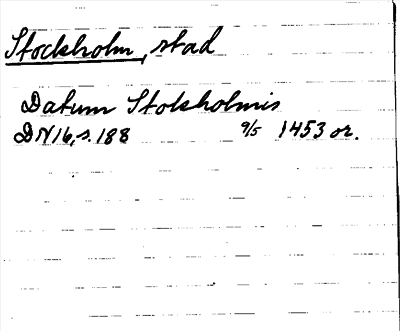 Stockholm, stad
Datum Stokholmis
DN 16, s. 188 9/5 1453 or.